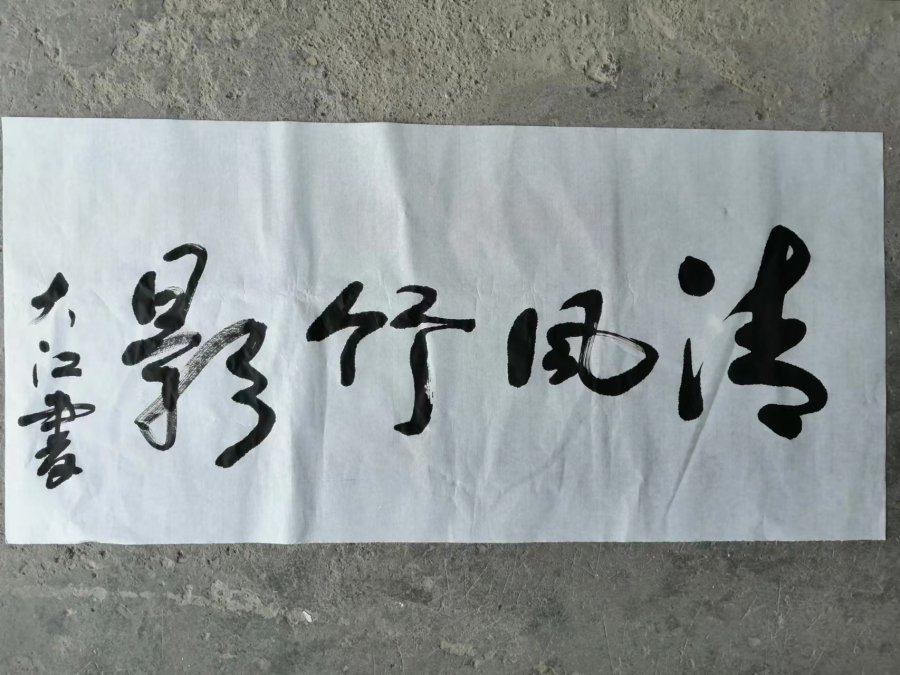 清风竹影
大江書